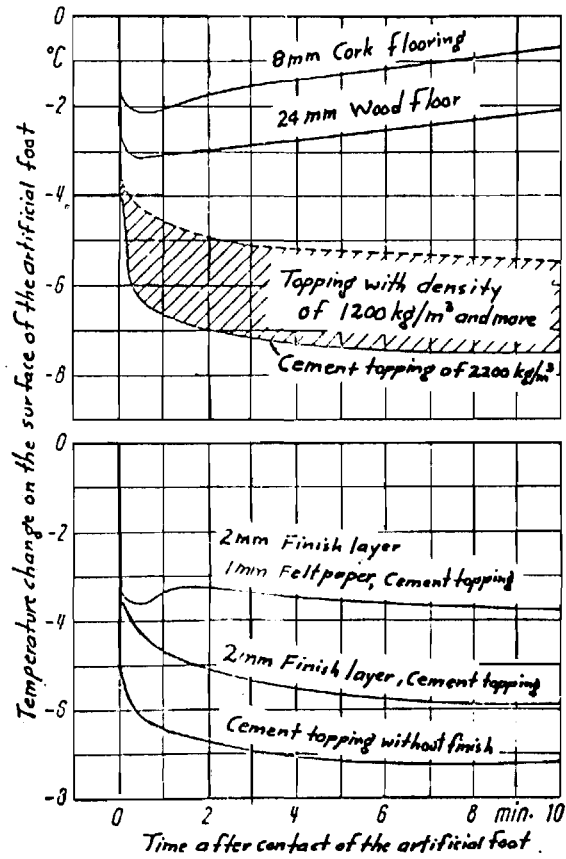 Temperature change on the surface of the artificial foot
0
°C
-2
-4
-6
-8
8mm Cork flooring
24mm Wood floor
Topping with density
of 1200 kg/m³ and more
Cement topping of 2200 kg/m³
0
-2
-4
-6
-8
2mm Finish layer
1mm Feltpaper, Cement topping
2mm Finish layer, Cement topping
Cement topping without finish
0 2 4 6 8 min. 10
Time after contact of the artificial foot